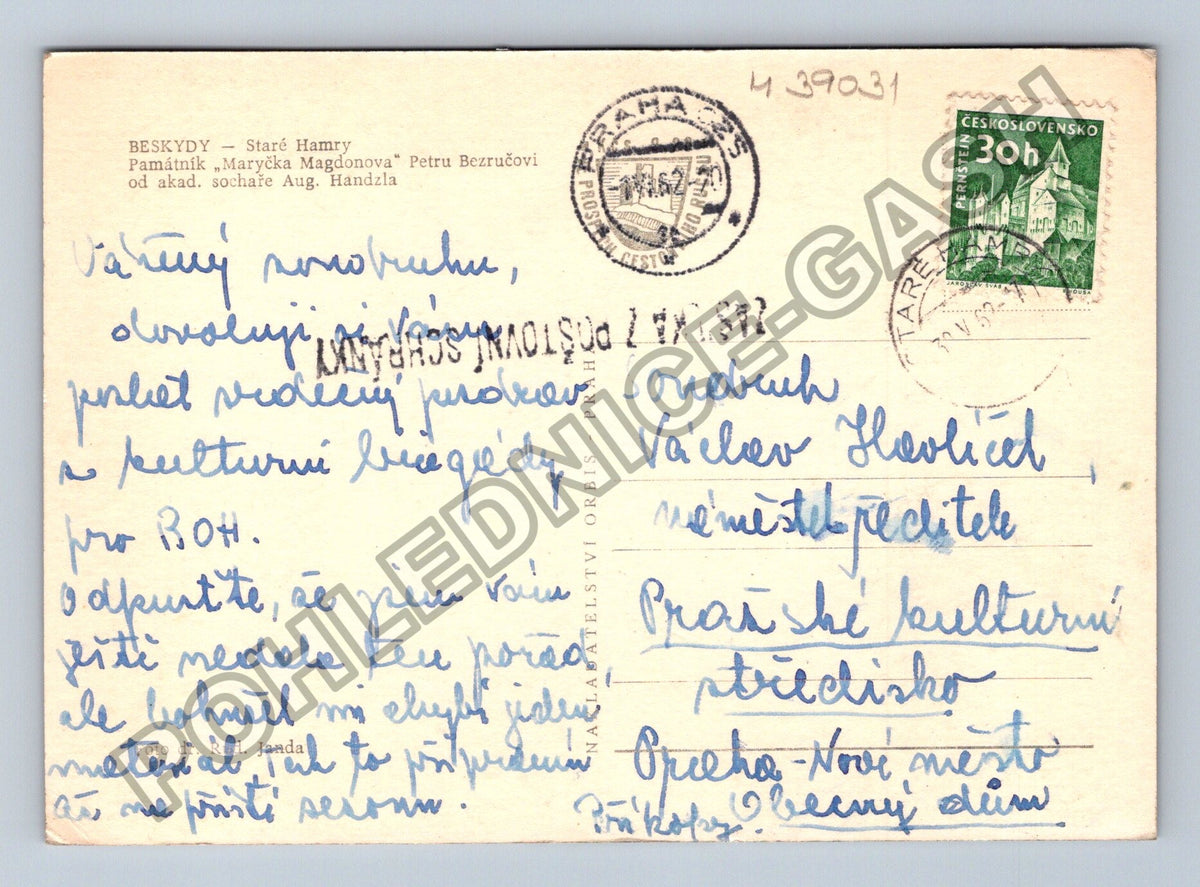 4 39031
BESKYDY — Staré Hamry
Památník „Maryčka Magdonova" Petru Bezručovi
od akad. sochaře Aug. Handzla
PRAHA ZS
-1.VI.62
ČESKOSLOVENSKO
30h
PERNŠTEJN
JAROSLAV ŠVÁB
STARÉ HAMRY
30.V.62
POŠTOVNÍ SCHRÁNKY
Vážený soudruhu,
dovoluji si Vám
poslat srdečný pozdrav
z kulturní brigády
pro ROH.
Odpusťte, že jsem Vám
ještě nedala ten pořad,
ale bohužel mi chybí jeden
materiál, tak to připravím
až na příští sezonu.
Foto dr. Rud. Janda
NAKLADATELSTVÍ ORBIS - PRAHA
Soudruh
Václav Havlíček,
náměstek ředitele
Pražské kulturní
středisko
Praha - Nové město
Příkopy. Obecný dům
POHLEDNICE-GASH